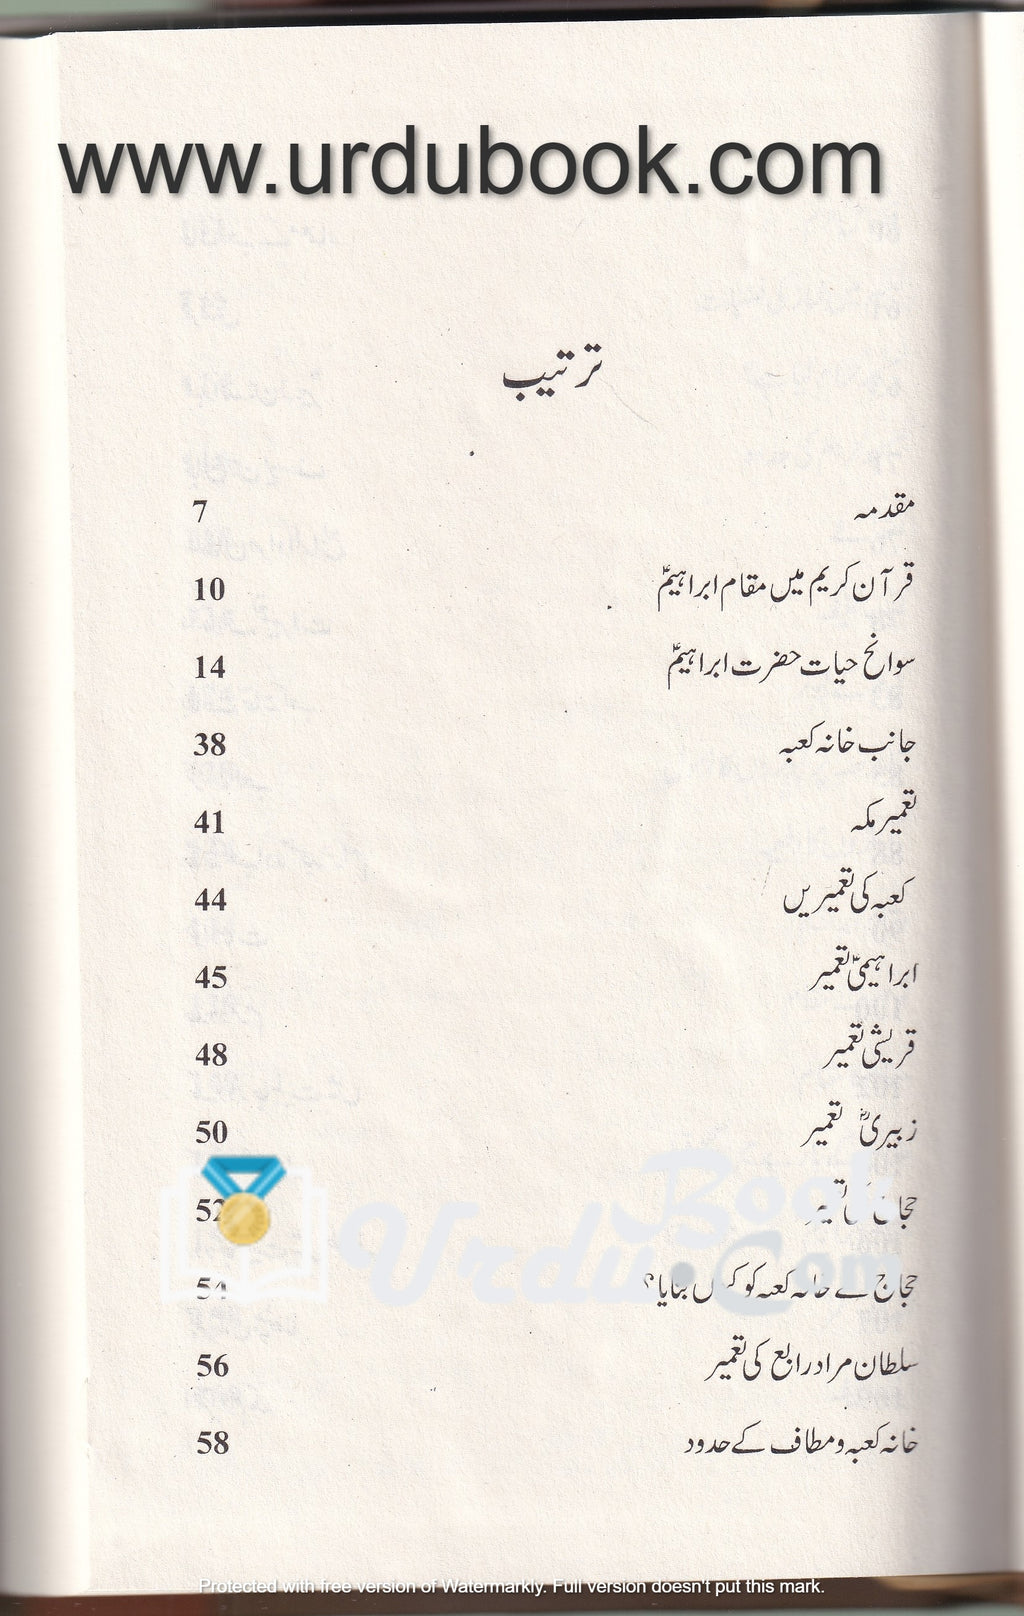 www.urdubook.com
ترتیب
مقدمہ 7
قرآن کریم میں مقام ابراہیمؑ 10
سوانح حیات حضرت ابراہیمؑ 14
جانب خانہ کعبہ 38
تعمیر مکہ 41
کعبہ کی تعمیریں 44
ابراہیمیؑ تعمیر 45
قریشی تعمیر 48
زبیریؓ تعمیر 50
حجاج کی تعمیر 52
حجاج نے خانہ کعبہ کو کیوں بنایا؟ 54
Urdu Book.Com
سلطان مراد رابع کی تعمیر 56
خانہ کعبہ و مطاف کے حدود 58
Protected with free version of Watermarkly. Full version doesn't put this mark.